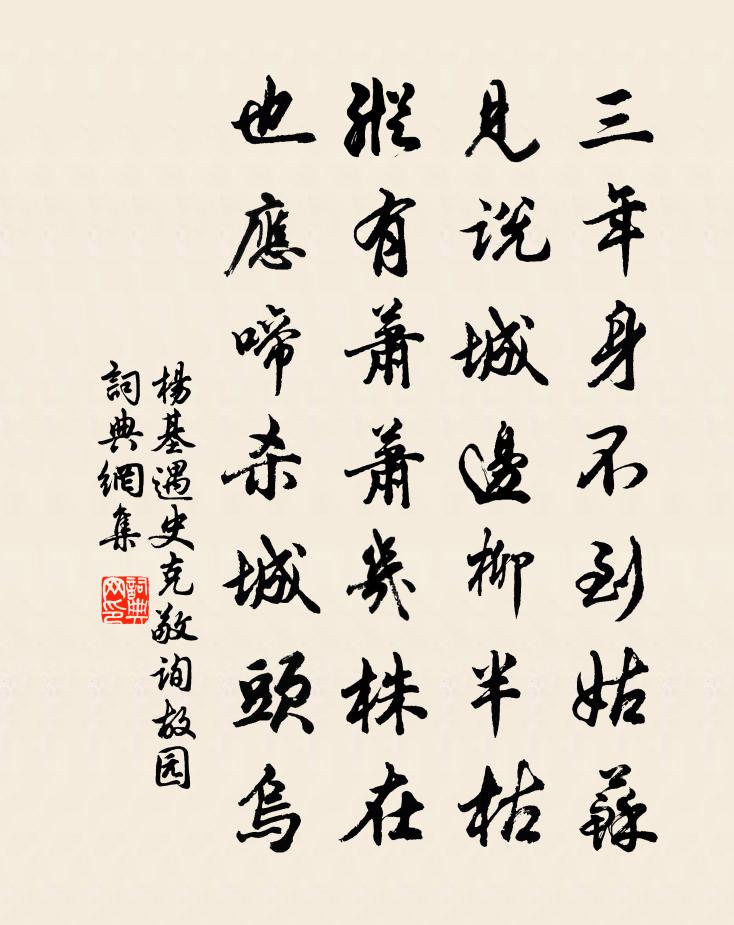 三年身不到姑蘇
見說城邊柳半枯
縱有蕭蕭幾株在
也應啼杀城頭烏
楊基遇史克敬詢故园
詞典網集
詞典網印